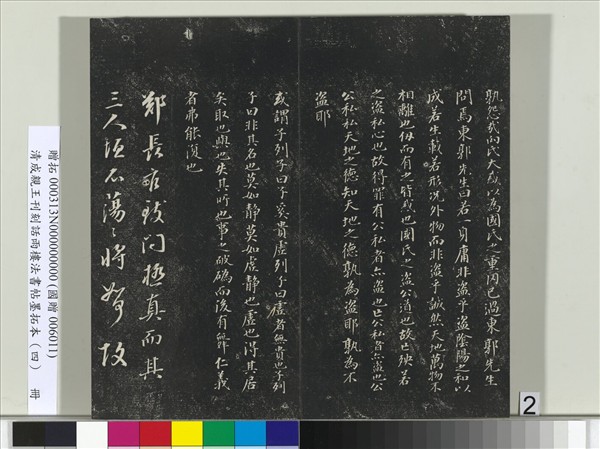 孰怨哉向氏大惑以為國氏之重罔己過東郭先生
問焉東郭先生曰若一身庸非盜乎盜陰陽之和以
成若生載若形況外物而非盜乎誠然天地萬物不
相離也仞而有之皆惑也國氏之盜公道也故亡殃若
之盜私心也故得罪有公私者亦盜也亡公私者亦盜也公
公私私天地之德知天地之德孰為盜耶孰為不
盜耶
或謂子列子曰子奚貴虛列子曰虛者無貴也子列
子曰非其名也莫如靜莫如虛靜也虛也得其居
矣取也與也失其所也事之破䃣而後有舞仁義
者弗能復也
鄭長 極真而其
三人 不蕩〻將 故
贈拓 000313N000000000 (國贈 006011)
清成親王刊刻話雨樓法書帖墨拓本（四） 冊
2